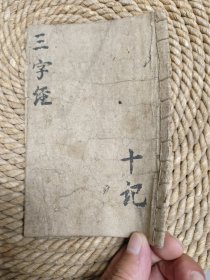 三字经
十记